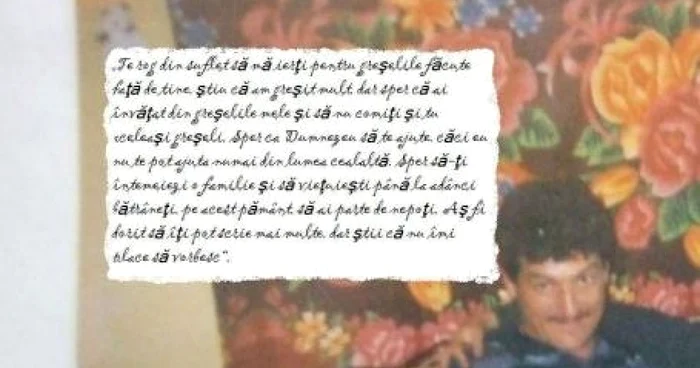 „Te rog din suflet să mă ierți pentru greșelile făcute
față de tine, știu că am greșit mult, dar sper că ai
învățat din greșelile mele și să nu comiți și tu
aceleași greșeli. Sper ca Dumnezeu să te ajute, căci eu
nu te pot ajuta numai din lumea cealaltă. Sper să-ți
întemeiezi o familie și să viețuiești până la adânci
bătrâneți, pe acest pământ, să ai parte de nepoți. Aș fi
dorit să îți pot scrie mai multe, dar știi că nu îmi
place să vorbesc”.